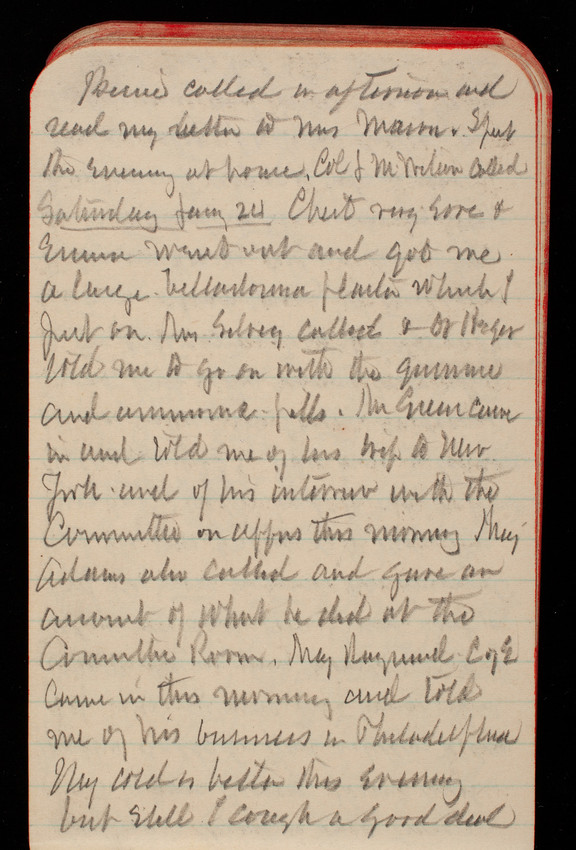 Bernie called in afternoon and
read my letter to Mrs Mason. Spent
the evening at home. Col J M Wilson called
Saturday Jany 24 Chest very sore &
Emma went out and got me
a large belladonna plaster which I
put on. Mrs called & Dr
told me to go on with the quinine
and ammonia pills. Mr Green came
in and told me of his trip to New
York and of his interview with the
Committee on appns this morning Maj
Adams also called and gave an
account of what he did at the
Committee Room. Maj Raymond C of E
came in this morning and told
me of his business in Philadelphia
My cold is better this evening
but still I cough a good deal